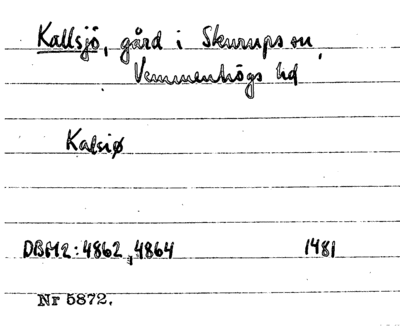 Kallsjö, gård i Skurups sn,
Vemmenhögs hd
Kalsiø
DBH2:4862, 4864 1481
Nr 5872.